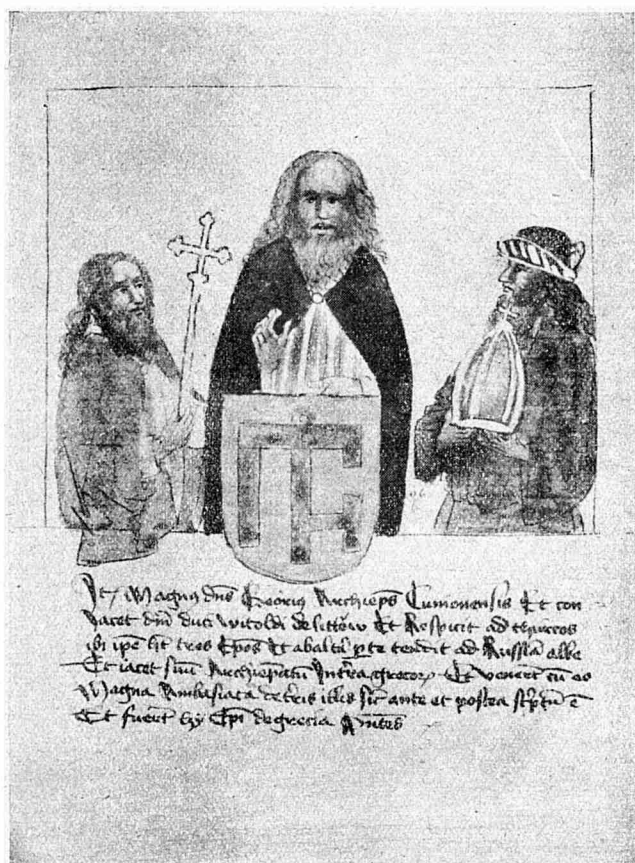 It Magnus dns Georiꝰ Archieps Cumonensis Et con
vacet dm duci witoldi de littow Et Respicit ad thurcos
ibi ipe ht tres Epos Et ab alta pte tendit ad Russia albe
Et iacet suu Archiepatu Intra grecoꝝ Et venert cu eo
Magna Ambasiata de tris illis sic ante et postea scptu e
Et fuert hy Epi de grecia